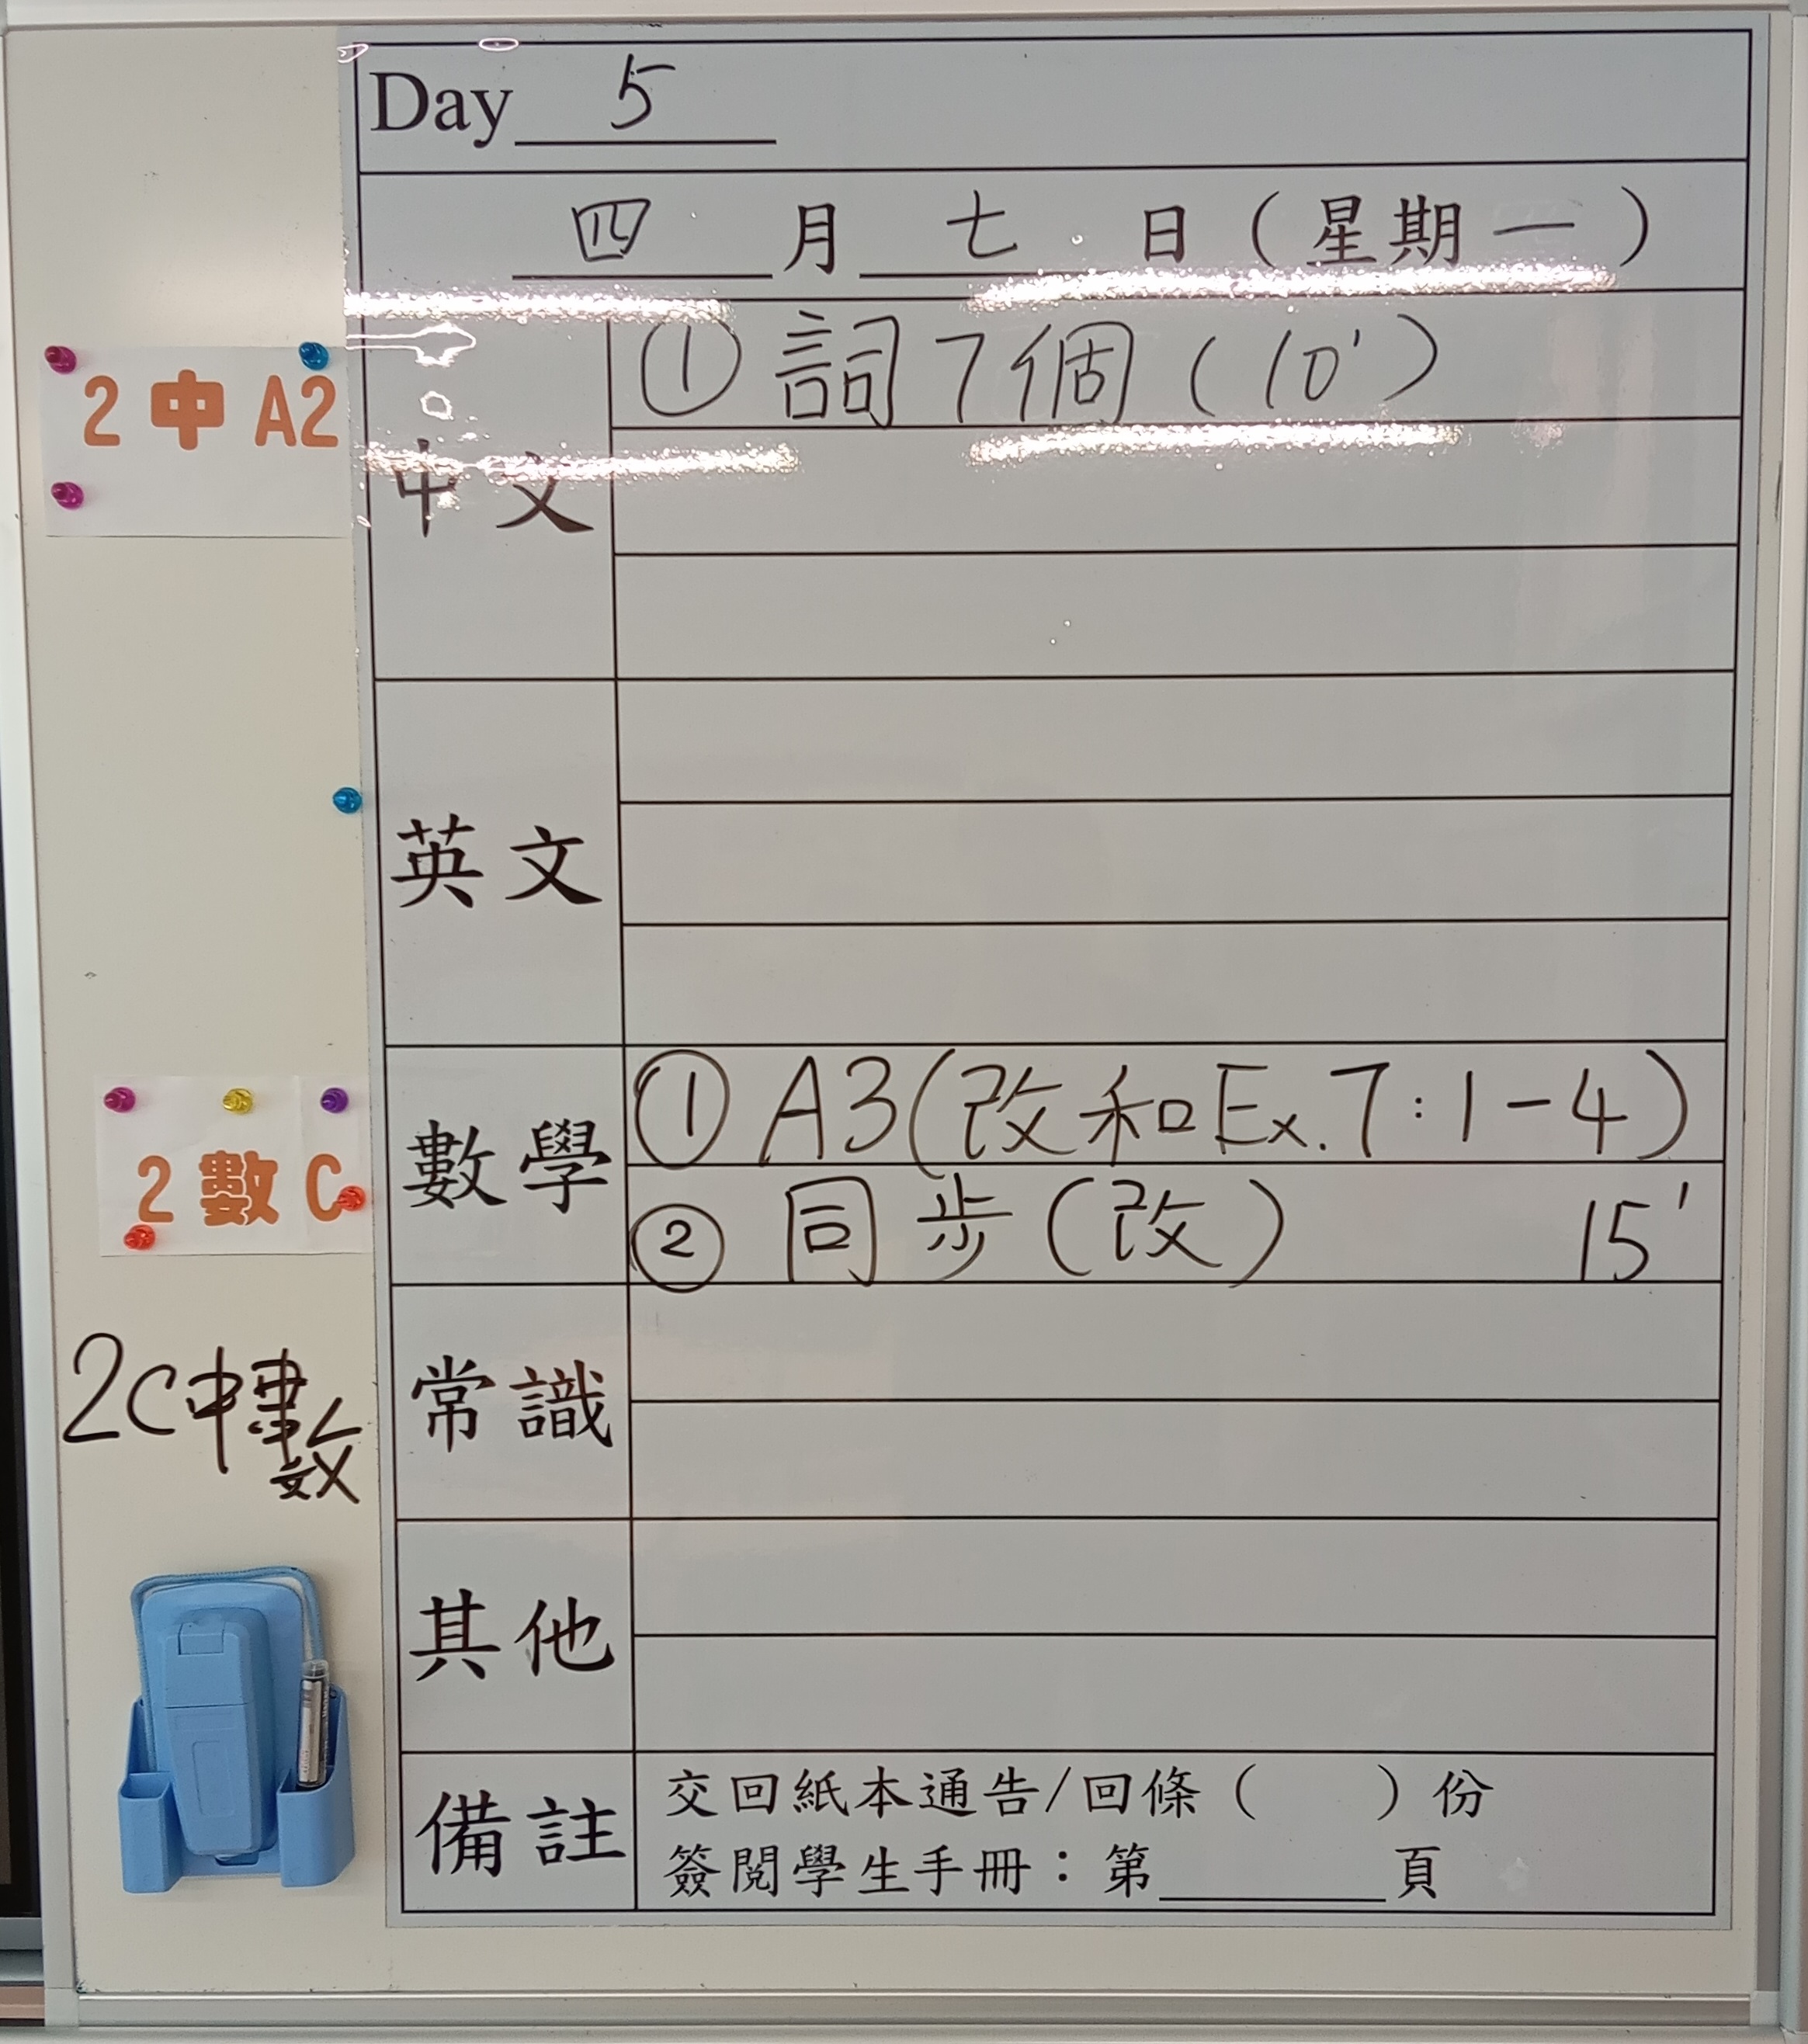 Day 5
四 月 七 日 (星期一)
2 中 A2
中文
① 詞7個 (10')
英文
2 數 C
數學
① A3(改和Ex.7:1-4)
② 同步(改) 15'
2C中數
常識
其他
備註
交回紙本通告/回條( )份
簽閱學生手冊:第____頁